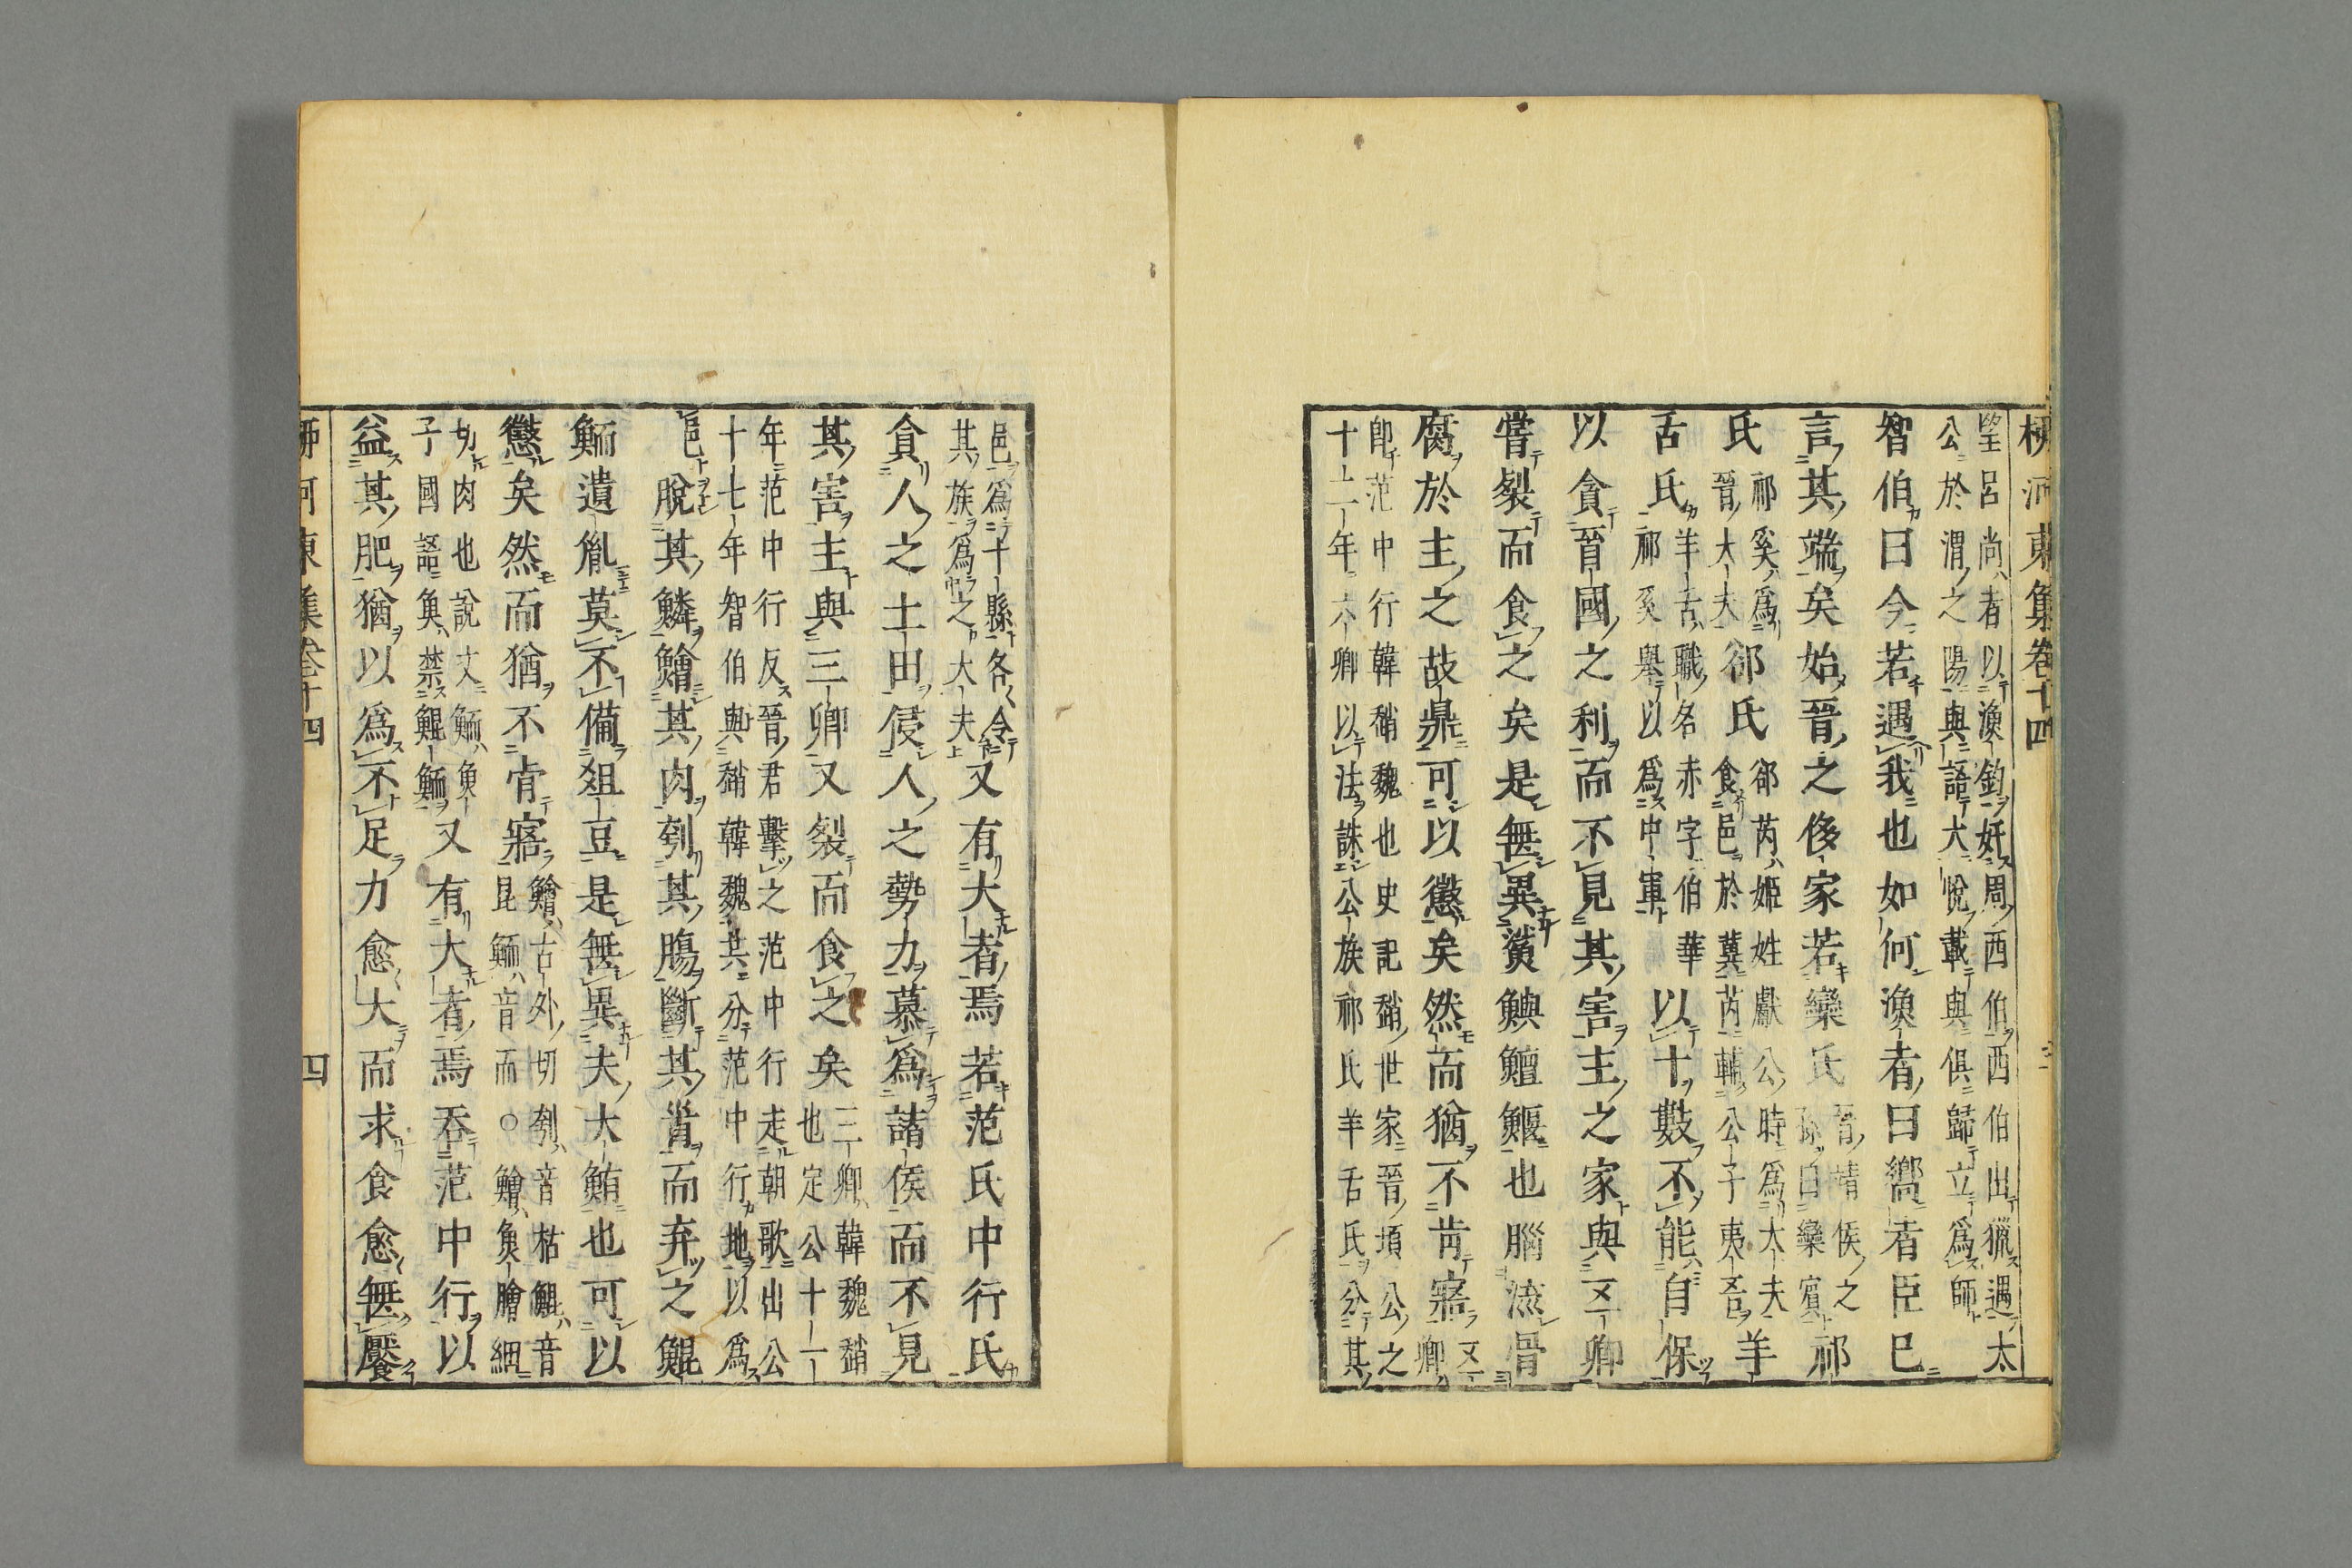 柳河東集卷十四
望呂尚者以漁釣奸周西伯西伯出獵遇太
公於渭之陽與語大悅載與俱歸立爲師
智伯曰今若遇我也如何漁者曰嚮者臣已
言其端矣始晉之侈家若欒氏晉靖侯之孫曰欒賓祁
氏祁奚爲晉大夫郤氏郤芮姬姓獻公時爲大夫食邑於冀芮輔公子夷吾羊
舌氏羊舌職名赤字伯華祁奚舉以爲中軍以十數不能自保
以貪晉國之利而不見其害主之家與五卿
嘗裂而食之矣是無異鯊鱮鱣鰋也腦流骨
腐於主之故鼎可以懲矣然而猶不肯寤五卿
卽范中行韓趙魏也史記趙世家晉頃公之
十二年六卿以法誅公族祁氏羊舌氏分其
邑爲十縣各令其族爲之大夫又有大者焉若范氏中行氏
貪人之土田侵人之勢力慕爲諸侯而不見
其害主與三卿又裂而食之矣三卿韓魏趙也定公十一
年范中行反晉君擊之范中行走朝歌出公
十七年智伯與趙韓魏共分范中行地以爲
邑脫其鱗鱠其肉刳其腸斷其首而弃之鯤
鮞遺胤莫不備爼豆是無異夫大鮪也可以
懲矣然而猶不肯寤鱠古外切刳音枯鯤音昆鮞音而○鱠魚膾細
切肉也說文鮞魚子國語魚禁鯤鮞又有大者焉吞范中行以
益其肥猶以爲不足力愈大而求食愈無饜
柳河東集卷十四
四